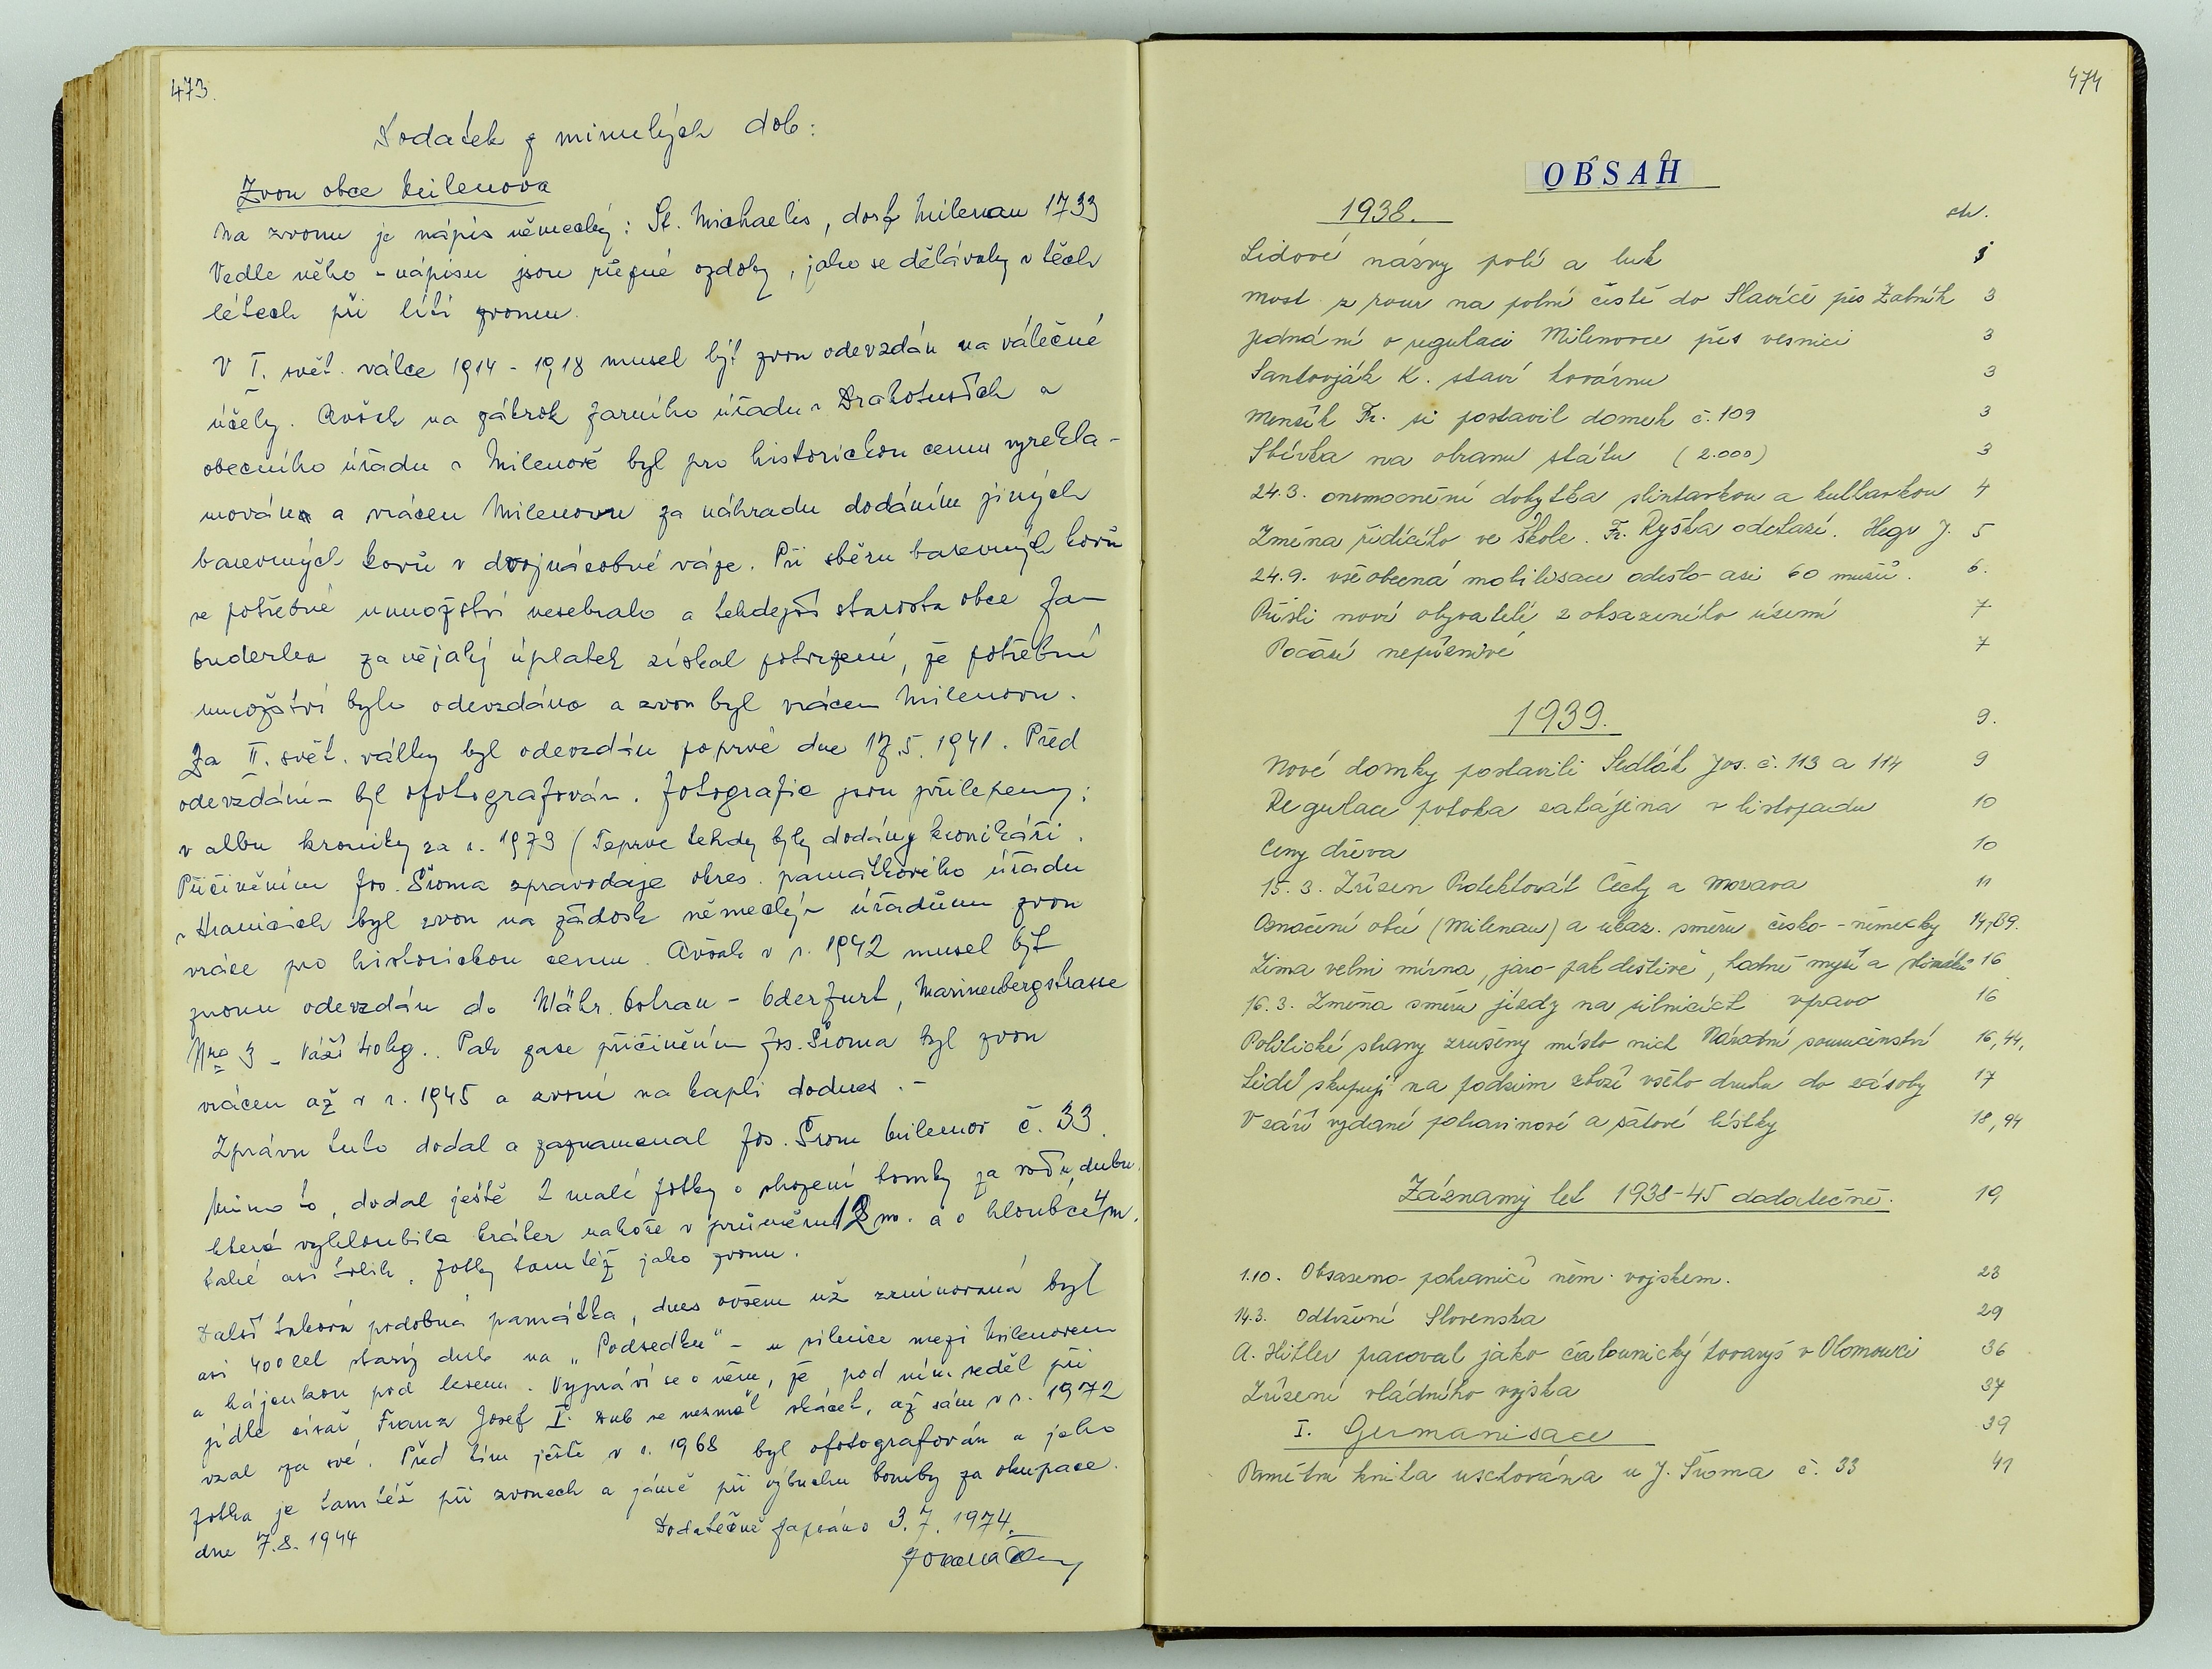 473.
Dodatek z minulých dob:
Zvon obce Milenova
Na zvonu je nápis německý: St. Michaelis, dorf Milenau 1733
Vedle něho - nápisu jsou různé ozdoby, jako se dělávaly v těch
létech při lití zvonu.
V I. svět. válce 1914 - 1918 musel být zvon odevzdán na válečné
účely. Avšak na zákrok farního úřadu v Drahotuších a
obecního úřadu v Milenově byl pro historickou cenu vyrekla-
mován a vrácen Milenovu za náhradu dodáním jiných
barevných kovů v dvojnásobné váze. Při sběru barevných kovů
se potřebné množství nesebralo a tehdejší starosta obce Jan
za nějaký úplatek získal potvrzení, že potřebné
množství bylo odevzdáno a zvon byl vrácen Milenovu.
Za II. svět. války byl odevzdán poprvé dne 17.5. 1941. Před
odevzdáním byl ofotografován. Fotografie jsou přilepeny:
v albu kroniky za r. 1973 (Teprve tehdy byly dodány kronikáři.
Přičiněním Jos. Šroma zpravodaje okres. památkového úřadu
v Hranicích byl zvon na žádost německým úřadům zvon
vráce pro historickou cenu. Avšak v r. 1942 musel být
zvonu odevzdán do Mähr. Ostrau - Oderfurt, Marienbergstrasse
Nro 3 - Váží 40kg.. Pak zase přičiněním Jos. Šroma byl zvon
vrácen až v r. 1945 a zvoní na kapli dodnes. -
Zprávu tuto dodal a zaznamenal Jos. Šrom Milenov č. 33.
Mimo to, dodal ještě 2 malé fotky o shození bomby za vodu, dubu.
která vyhloubila kráter nahoře v průměru 12 m. a o hloubce 4 m.
také asi tolik. Fotky tamtéž jako zvonu.
Další taková podobná památka, dnes ovšem už zemínovaná byl
asi 400 let starý dub na „Podsedku" - u silnice mezi Milenovem
a hájenkou pod lesem. Vypráví se o něm, že pod ním seděl při
jídle císař Franz Josef I. Dub se nesměl skácet, až sám v r. 1972
vzal za své. Před tím ještě v r. 1968 byl ofotografován a jeho
fotka je tamtéž při zvonech a jámě při výbuchu bomby za okupace.
dne 7.8. 1944
Dodatečně zapsáno 3.7. 1974.
474
OBSAH
1938. str.
Lidové názvy polí a luk 1
Most z rour na polní cestě do Slavíče přes Žabník 3
Jednání o regulaci Milenovce přes vesnici 3
Santovják K. staví kovárnu 3
Menšík Fr. si postavil domek č. 109 3
Sbírka na obranu státu (2.000) 3
24.3. onemocnění dobytka slintavkou a kulhavkou 4
Změna řídícího ve škole. Fr. Ryška odchází. Hegr J. 5
24.9. všeobecná mobilisace odešlo asi 60 mužů. 6.
Přišli noví obyvatelé z obsazeného území 7
Počasí nepříznivé 7
1939. 9.
Nové domky postavili Sedlák Jos. č. 113 a 114 9
Regulace potoka zahájena v listopadu 10
Ceny dřeva 10
15.3. Zřízen Protektorát Čechy a Morava 11
Označení obcí (Milenau) a ukaz. směru česko-německy 14,89.
Zima velmi mírná, jaro pak deštivé, hodně myší a slimáků 16
16.3. Změna směru jízdy na silnicích vpravo 16
Politické strany zrušeny místo nich Národní souručenství 16,44,
Lidé skupují na podzim zboží všeho druhu do zásoby 17
V září vydané potravinové a šatové lístky 18,94
Záznamy let 1938-45 dodatečně. 19
1.10. Obsazeno pohraničí něm. vojskem. 23
14.3. Odtržení Slovenska 29
A. Hitler pracoval jako čalounický tovaryš v Olomouci 36
Zřízení vládního vojska 37
I. Germanisace 39
Pamětní kniha uschována u J. Šroma č. 33 41